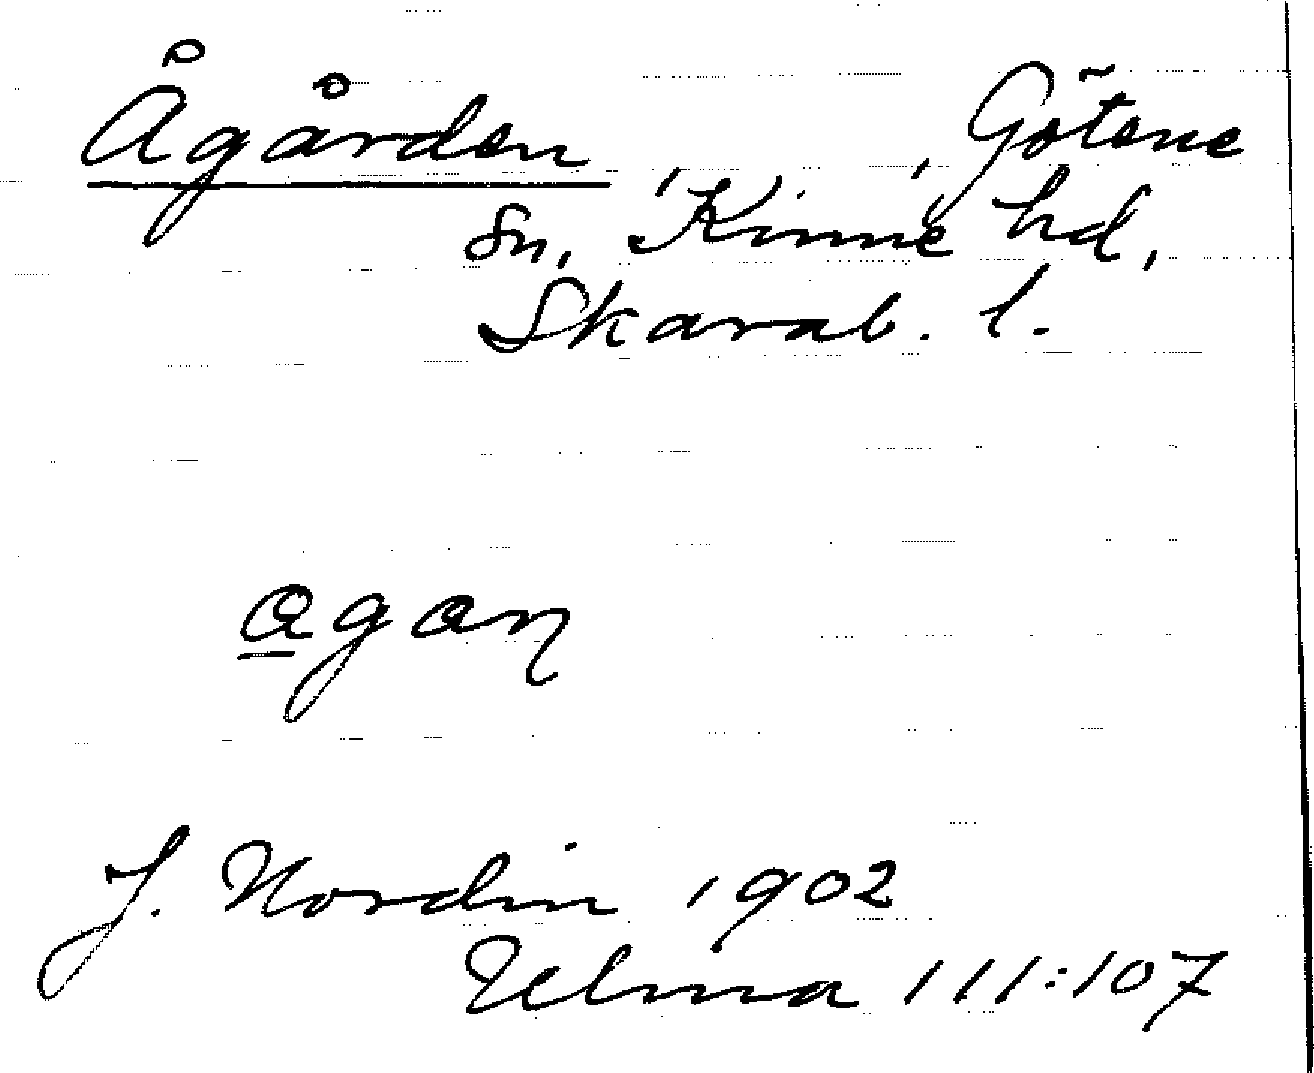 Ågården, Götene
sn, Kinne hd,
Skarab. l.
a̲gaɳ
J. Nordin 1902
Ulma 111:107